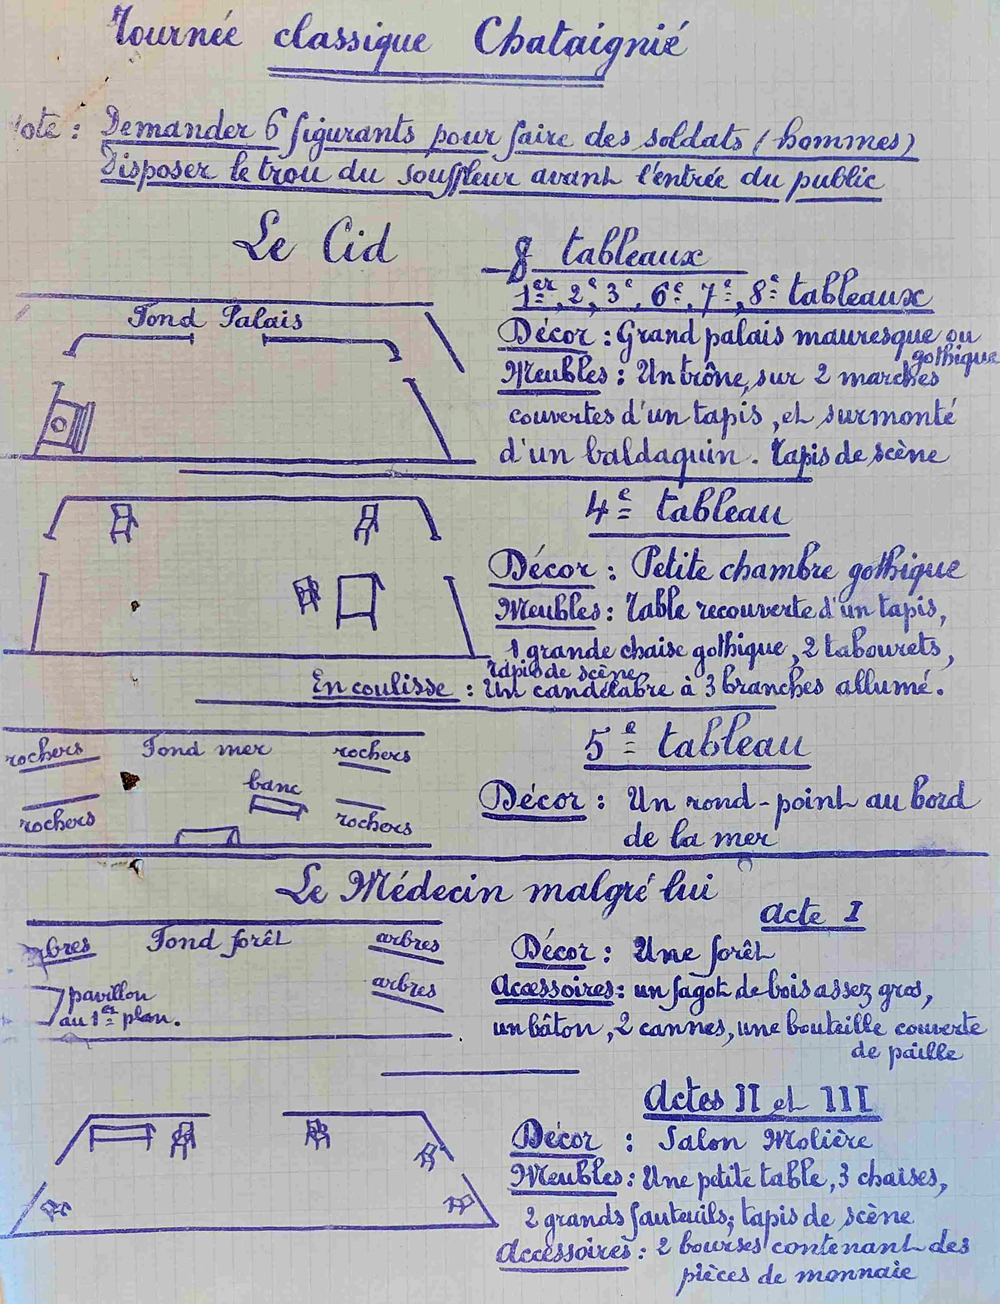 Tournée classique Chataignié
Note : Demander 6 figurants pour faire des soldats (hommes)
Disposer le trou du souffleur avant l'entrée du public
Le Cid
8 tableaux
1er, 2e, 3e, 6e, 7e, 8e tableaux
Fond Palais
Décor : Grand palais mauresque ou
gothique
Meubles : Un trône, sur 2 marches
couvertes d'un tapis, et surmonté
d'un baldaquin. Tapis de scène
4e tableau
Décor : Petite chambre gothique
Meubles : Table recouverte d'un tapis,
1 grande chaise gothique, 2 tabourets,
tapis de scène
En coulisse : Un candélabre à 3 branches allumé.
5e tableau
rochers Fond mer rochers
banc
rochers rochers
Décor : Un rond-point au bord
de la mer
Le Médecin malgré lui
Acte I
arbres Fond forêt arbres
pavillon
au 1er plan.
arbres
Décor : Une forêt
Accessoires : un fagot de bois assez gros,
un bâton, 2 cannes, une bouteille couverte
de paille
Actes II et III
Décor : Salon Molière
Meubles : Une petite table, 3 chaises,
2 grands fauteuils; tapis de scène
Accessoires : 2 bourses contenant des
pièces de monnaie